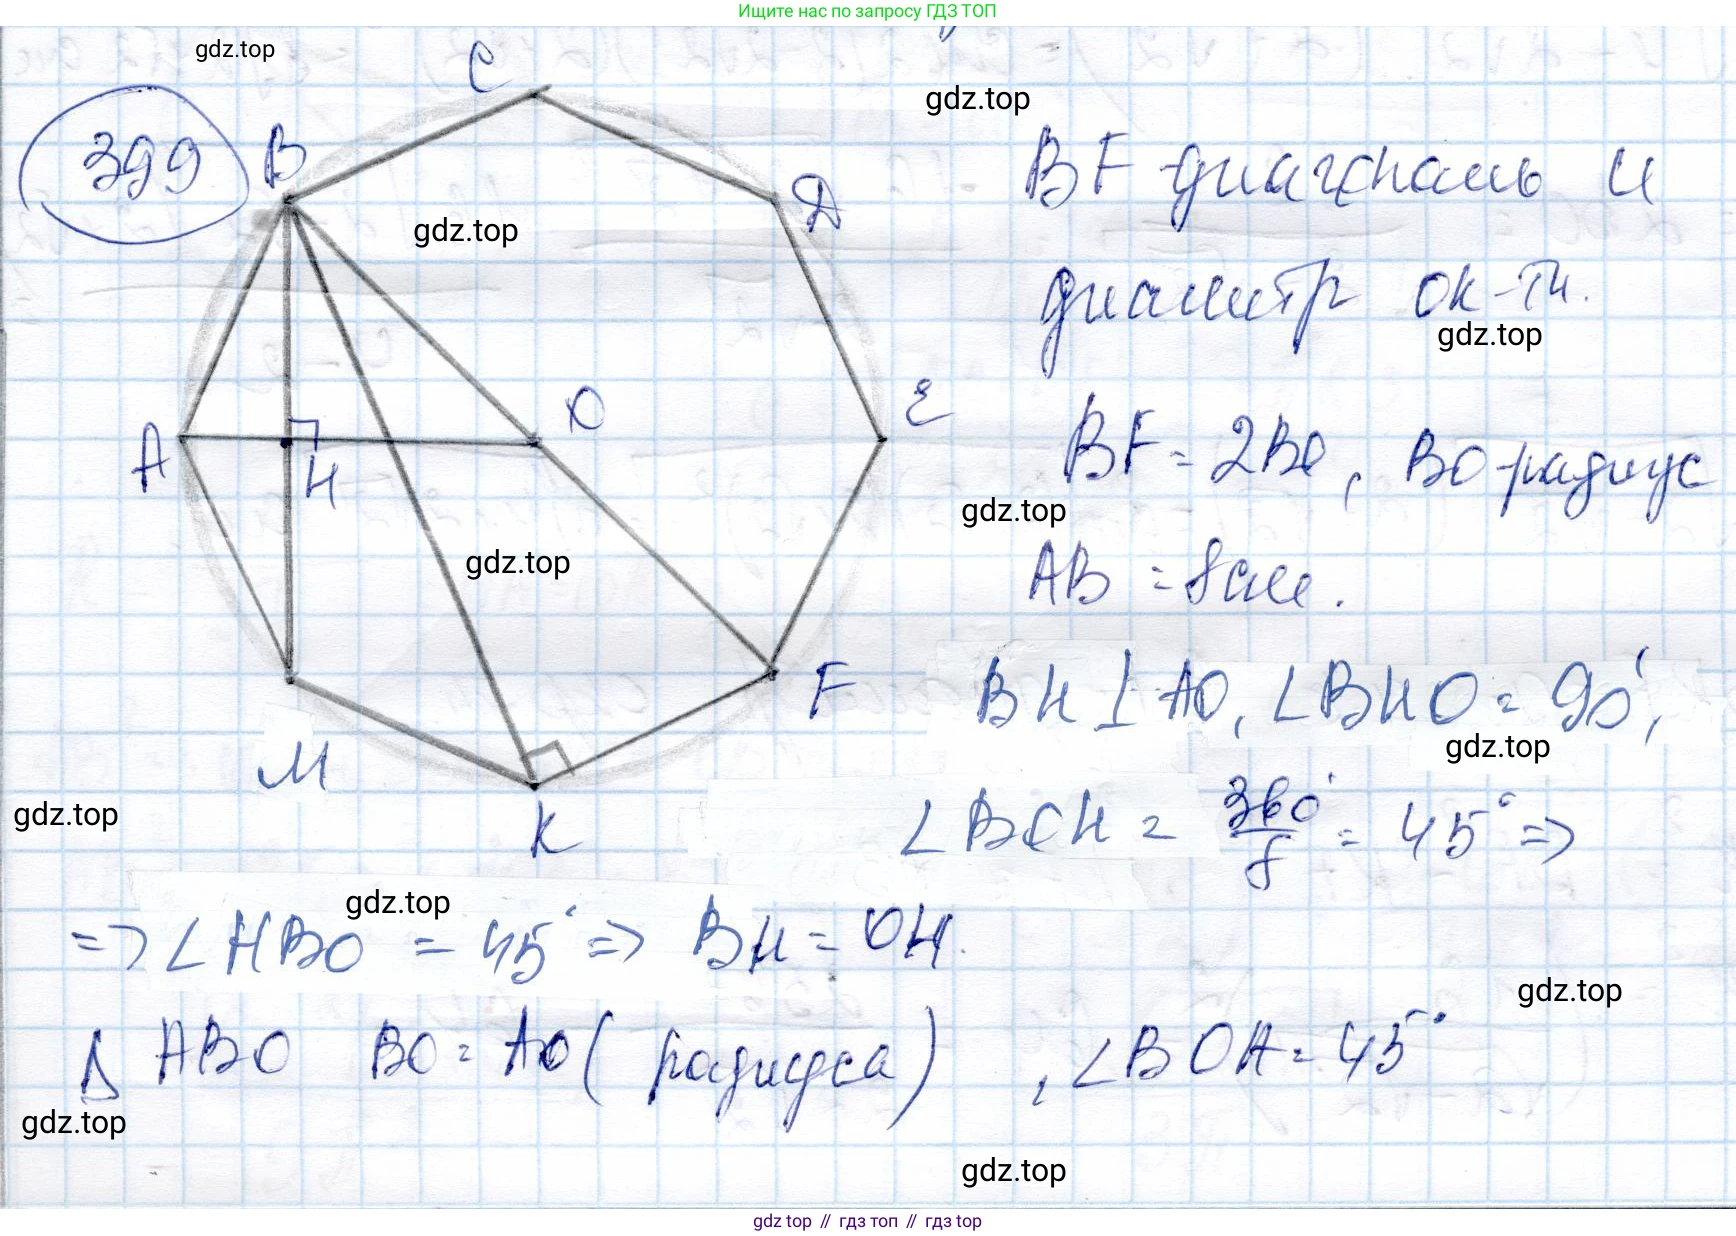 Ищите нас по запросу ГДЗ ТОП
gdz.top
399
C
gdz.top
B
Д
gdz.top
BF диагональ и
диаметр ок-ти.
gdz.top
A
H
O
E
BF = 2BO, BO радиус
gdz.top
gdz.top
AB = 8 см.
F
BH ⊥ AO, ∠BHO = 90°,
gdz.top
M
K
gdz.top
∠BOH = 360°/8 = 45° =>
gdz.top
=> ∠HBO = 45° => BH = OH.
gdz.top
Δ ABO BO = AO (радиуса), ∠BOA = 45°
gdz.top
gdz.top
gdz top // гдз топ // гдз top